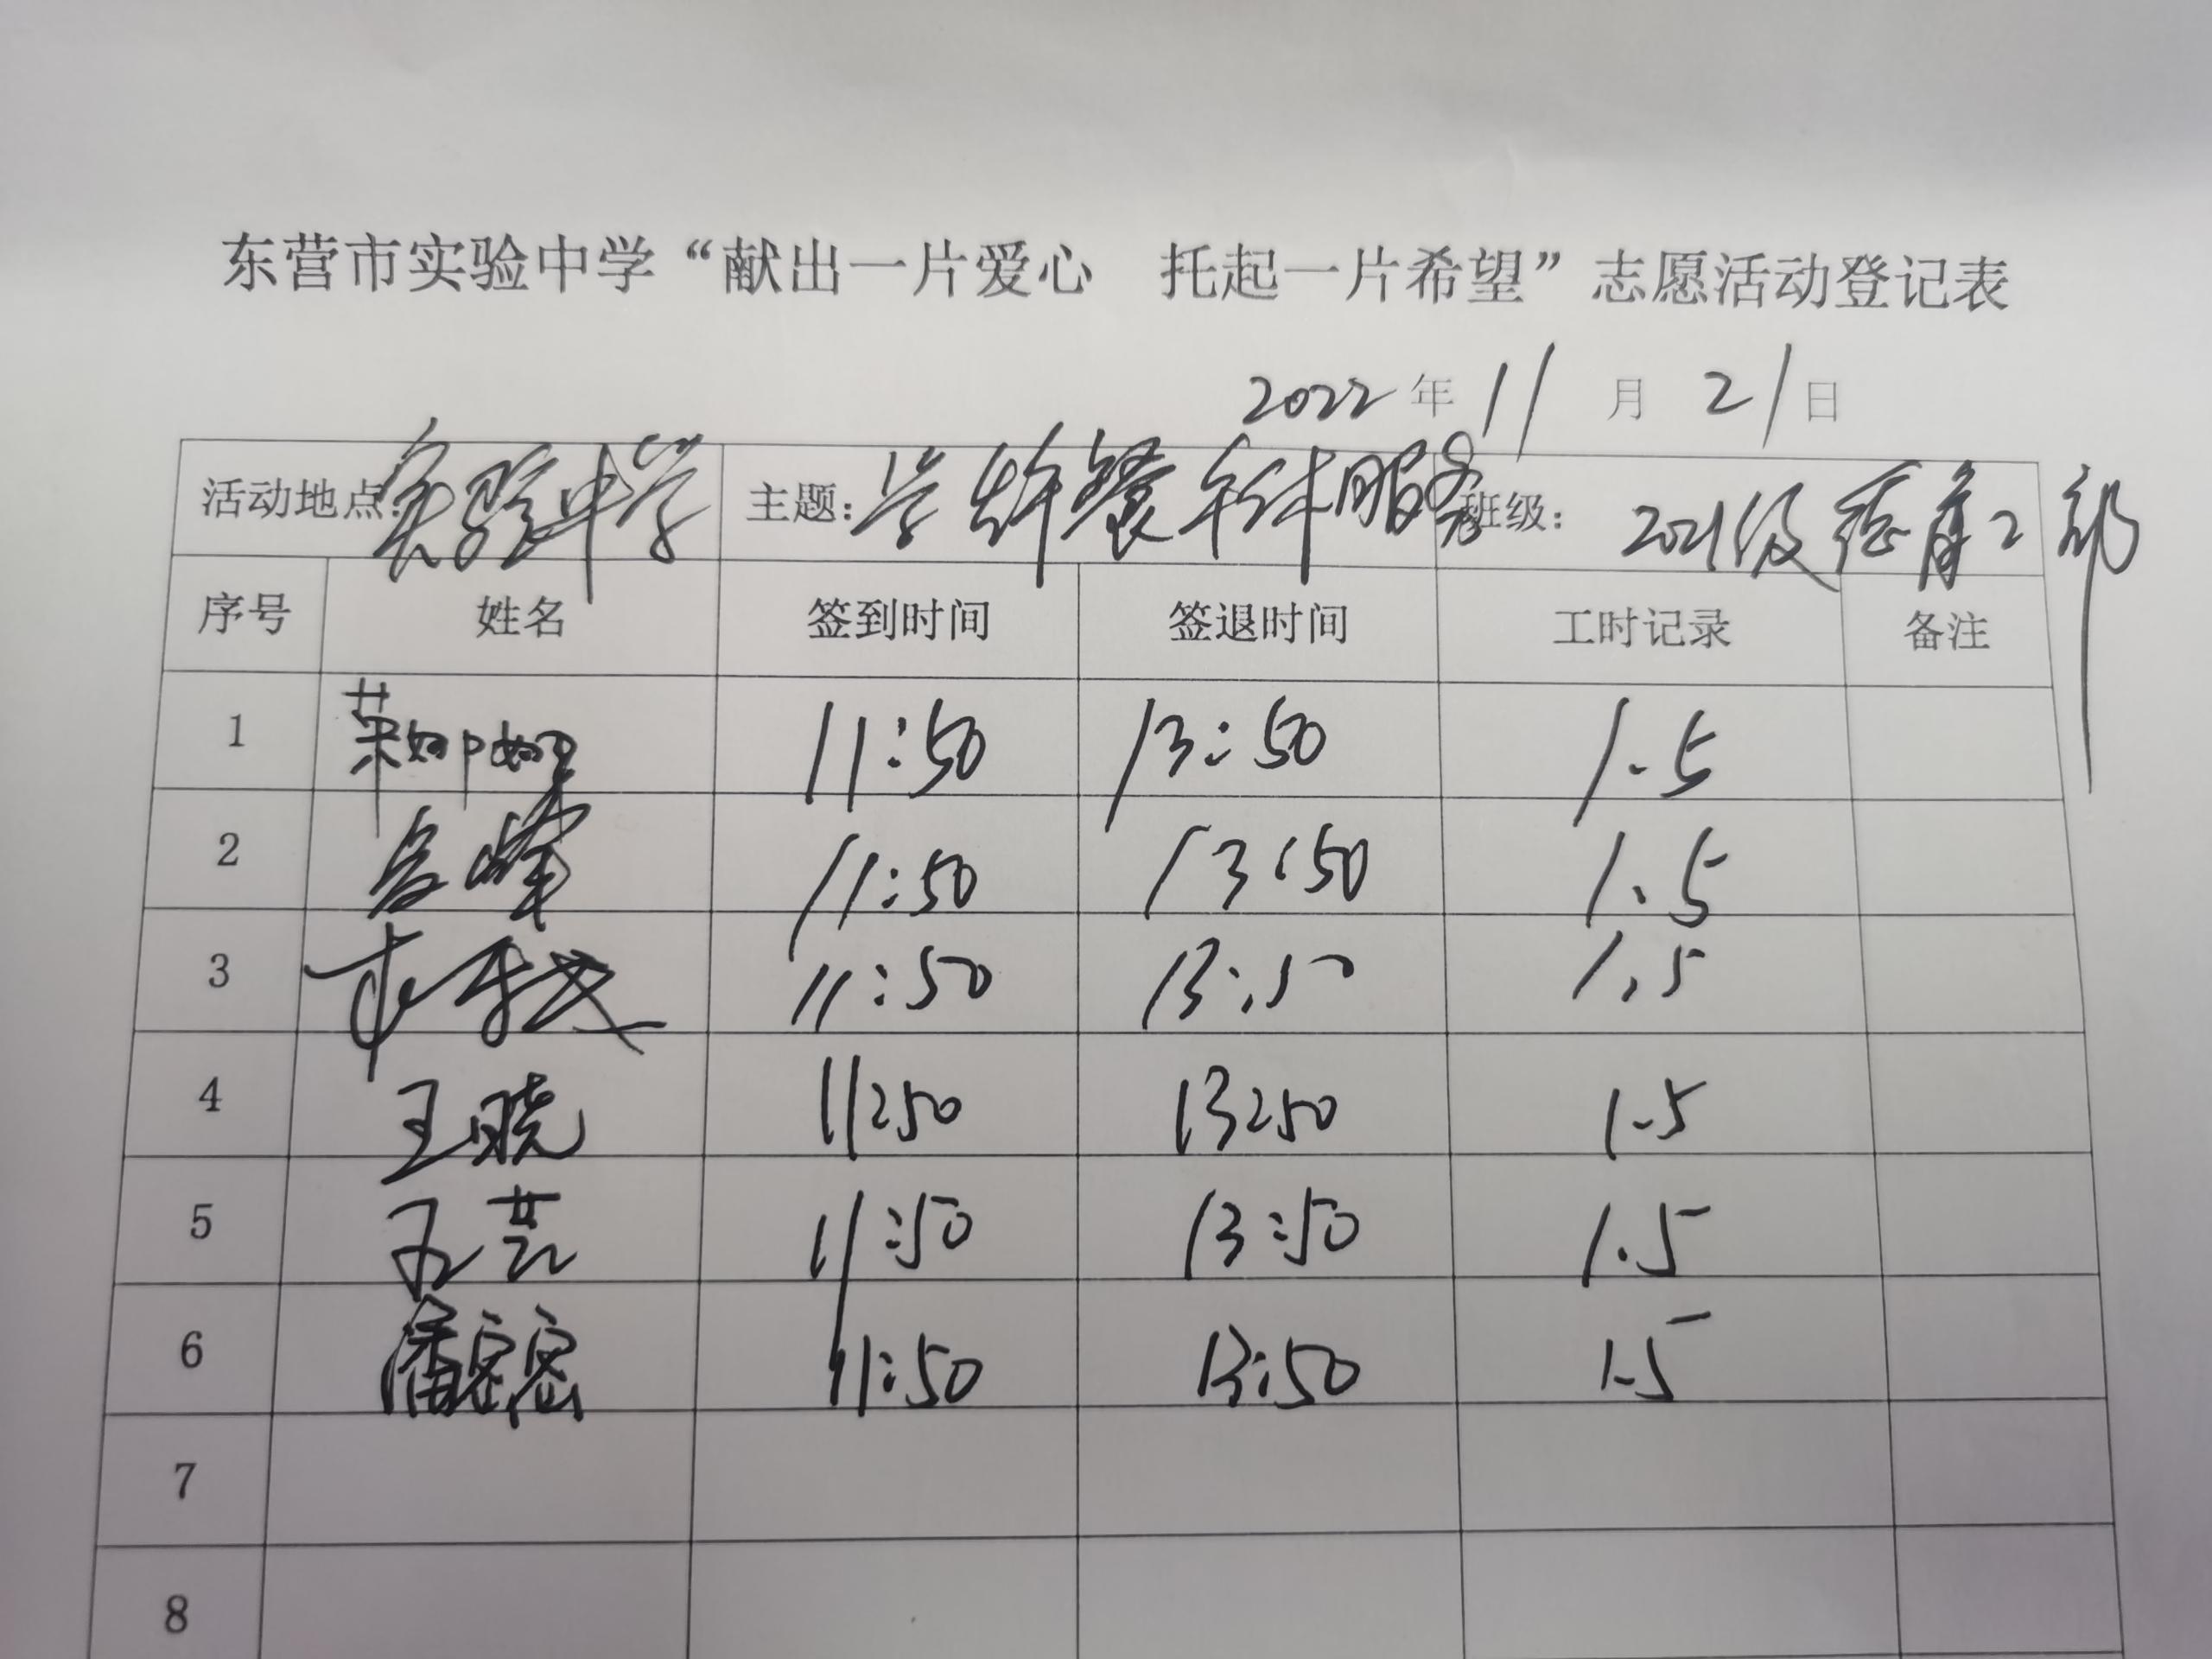 东营市实验中学“献出一片爱心 托起一片希望”志愿活动登记表
2022年11月21日
活动地点:实验中学 主题:学生餐车服务 班级:2021级德育2部
序号 姓名 签到时间 签退时间 工时记录 备注
1 11:50 13:50 1.5
2 11:50 13:50 1.5
3 11:50 13:50 1.5
4 王晓 11:50 13:50 1.5
5 11:50 13:50 1.5
6 潘密密 11:50 13:50 1.5
7
8